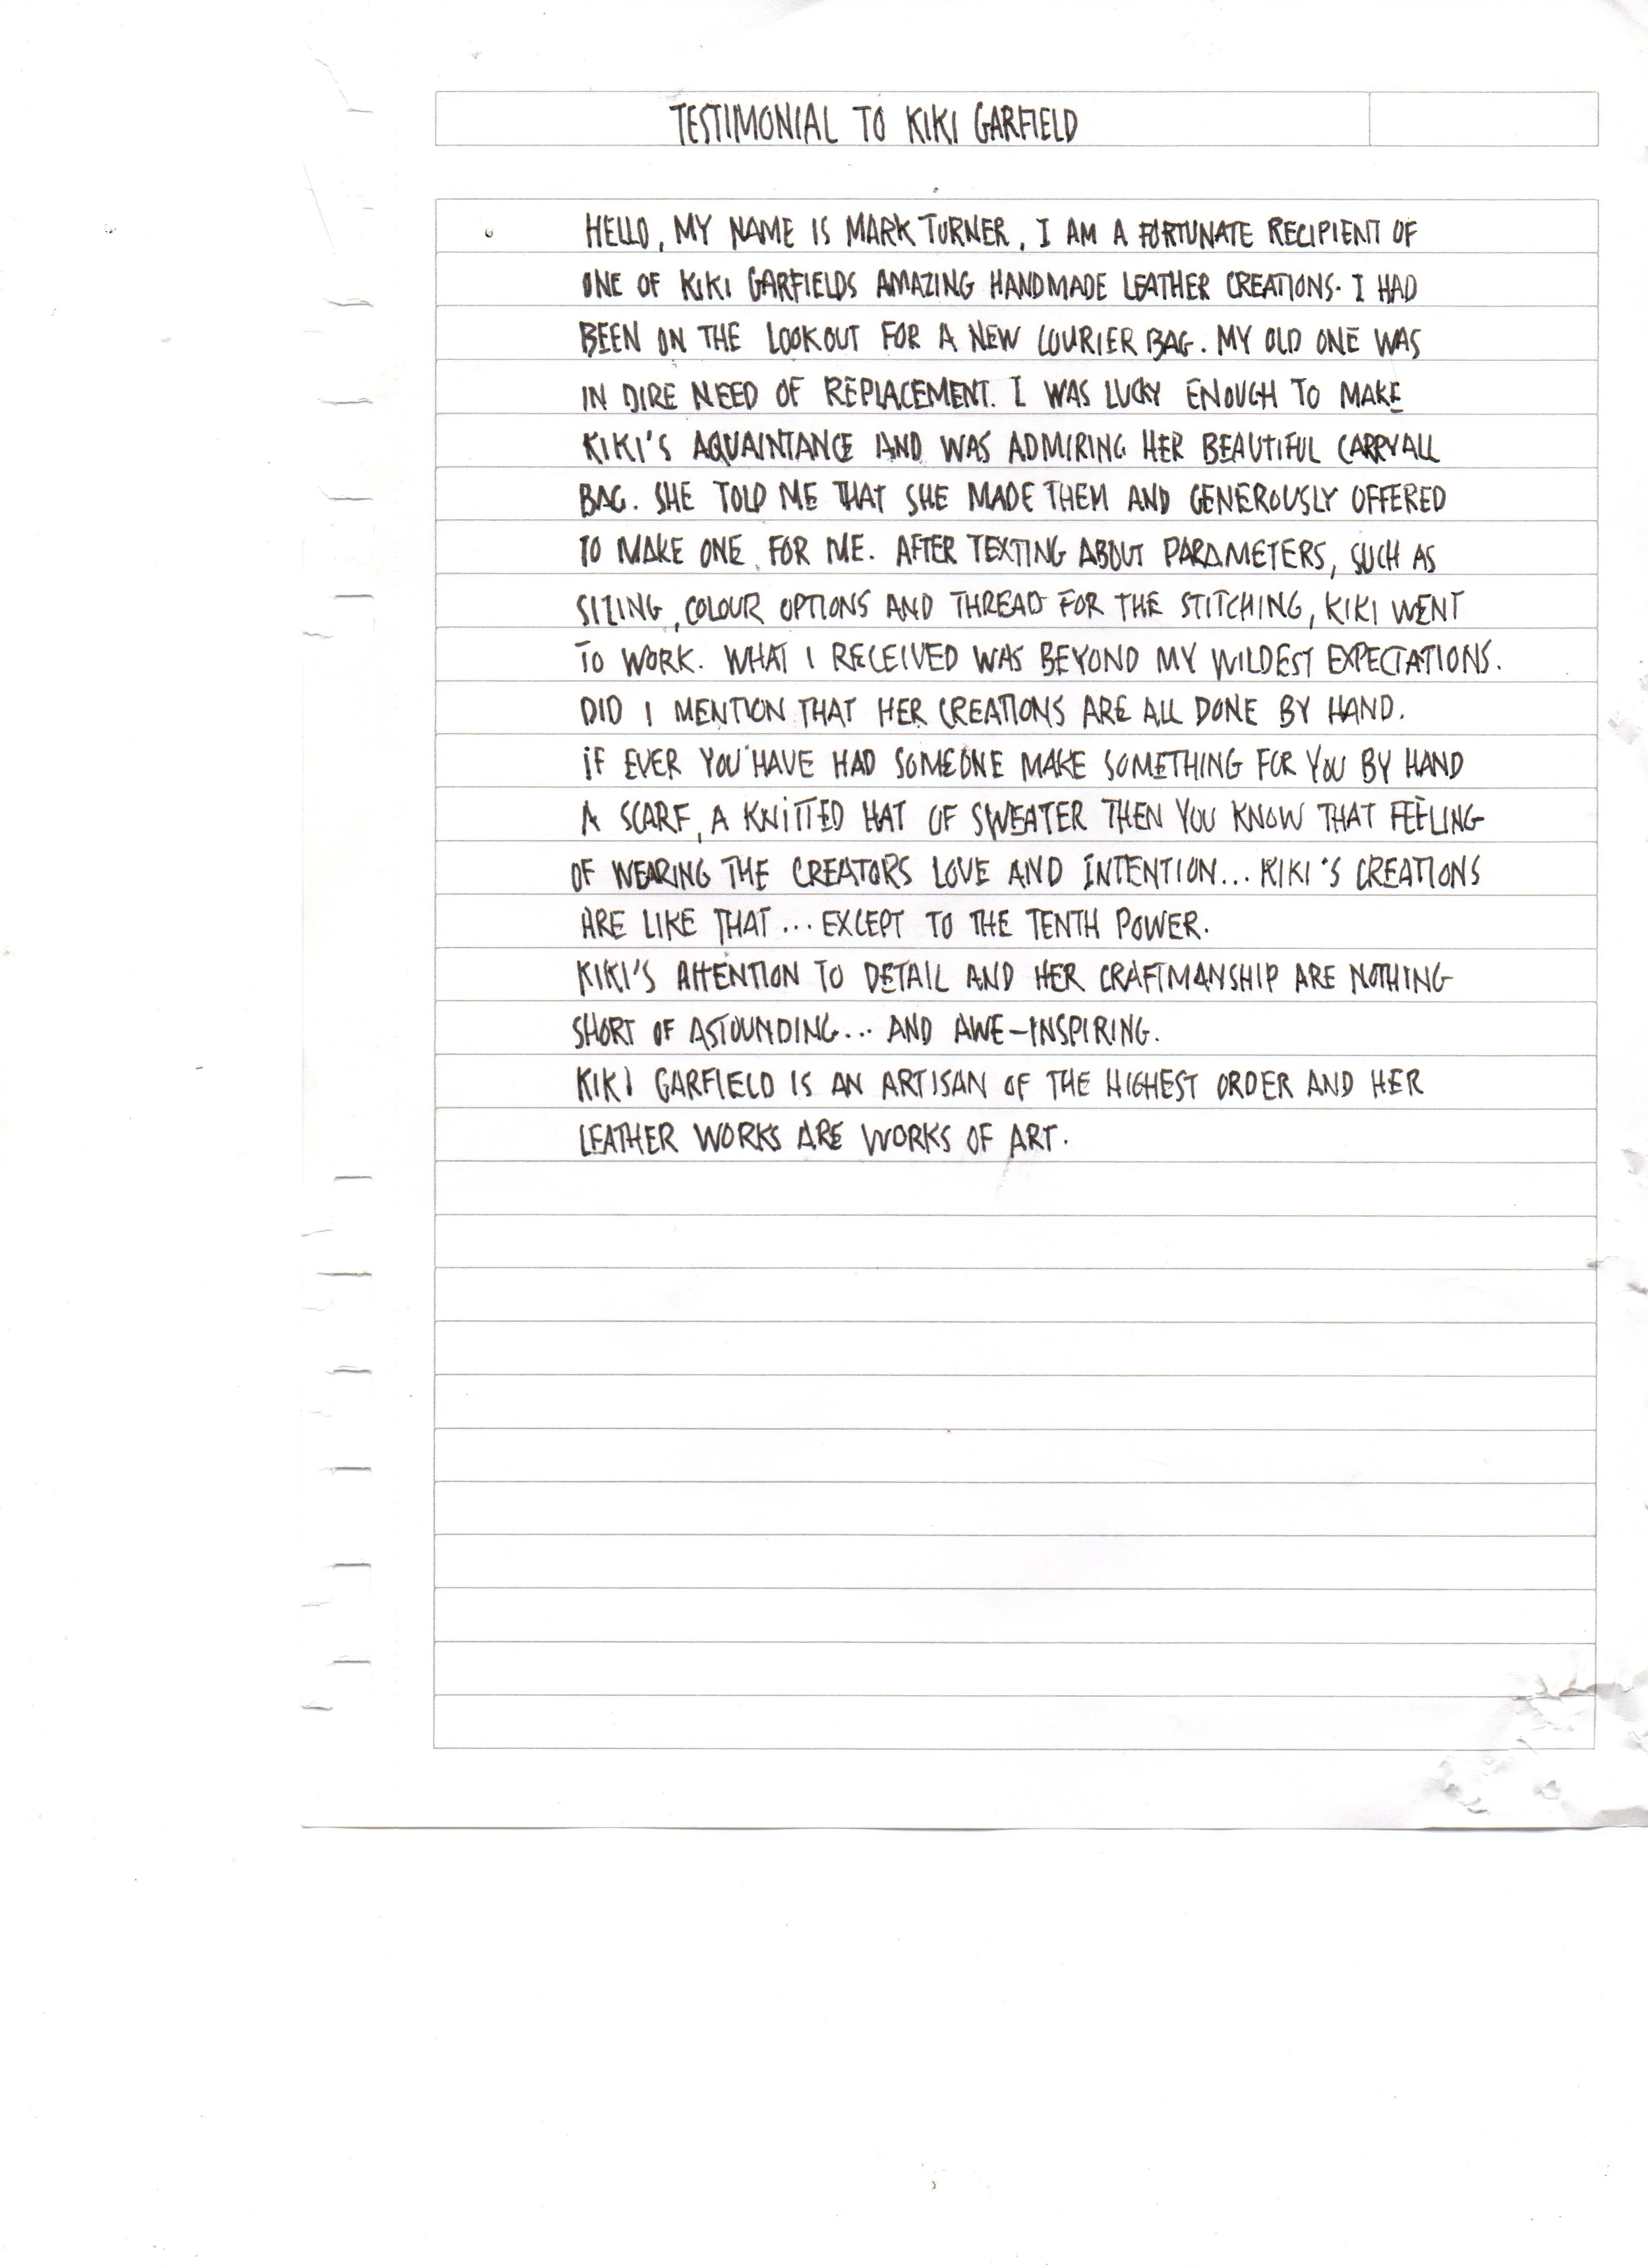 TESTIMONIAL TO KIKI GARFIELD
HELLO, MY NAME IS MARK TURNER, I AM A FORTUNATE RECIPIENT OF
ONE OF KIKI GARFIELDS AMAZING HANDMADE LEATHER CREATIONS. I HAD
BEEN ON THE LOOKOUT FOR A NEW COURIER BAG. MY OLD ONE WAS
IN DIRE NEED OF REPLACEMENT. I WAS LUCKY ENOUGH TO MAKE
KIKI'S AQUAINTANCE AND WAS ADMIRING HER BEAUTIFUL CARRYALL
BAG. SHE TOLD ME THAT SHE MADE THEM AND GENEROUSLY OFFERED
TO MAKE ONE FOR ME. AFTER TEXTING ABOUT PARAMETERS, SUCH AS
SIZING, COLOUR OPTIONS AND THREAD FOR THE STITCHING, KIKI WENT
TO WORK. WHAT I RECEIVED WAS BEYOND MY WILDEST EXPECTATIONS.
DID I MENTION THAT HER CREATIONS ARE ALL DONE BY HAND.
IF EVER YOU HAVE HAD SOMEONE MAKE SOMETHING FOR YOU BY HAND
A SCARF, A KNITTED HAT OF SWEATER THEN YOU KNOW THAT FEELING
OF WEARING THE CREATORS LOVE AND INTENTION... KIKI'S CREATIONS
ARE LIKE THAT... EXCEPT TO THE TENTH POWER.
KIKI'S ATTENTION TO DETAIL AND HER CRAFTMANSHIP ARE NOTHING
SHORT OF ASTOUNDING... AND AWE-INSPIRING.
KIKI GARFIELD IS AN ARTISAN OF THE HIGHEST ORDER AND HER
LEATHER WORKS ARE WORKS OF ART.